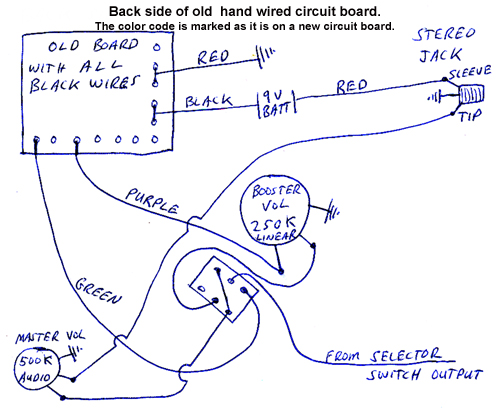 Back side of old hand wired circuit board.
The color code is marked as it is on a new circuit board.
OLD BOARD
WITH ALL
BLACK WIRES
RED
BLACK
9V
BATT
RED
STEREO
JACK
SLEEVE
TIP
PURPLE
BOOSTER
VOL
250K
LINEAR
GREEN
MASTER VOL
500K
AUDIO
FROM SELECTOR
SWITCH OUTPUT